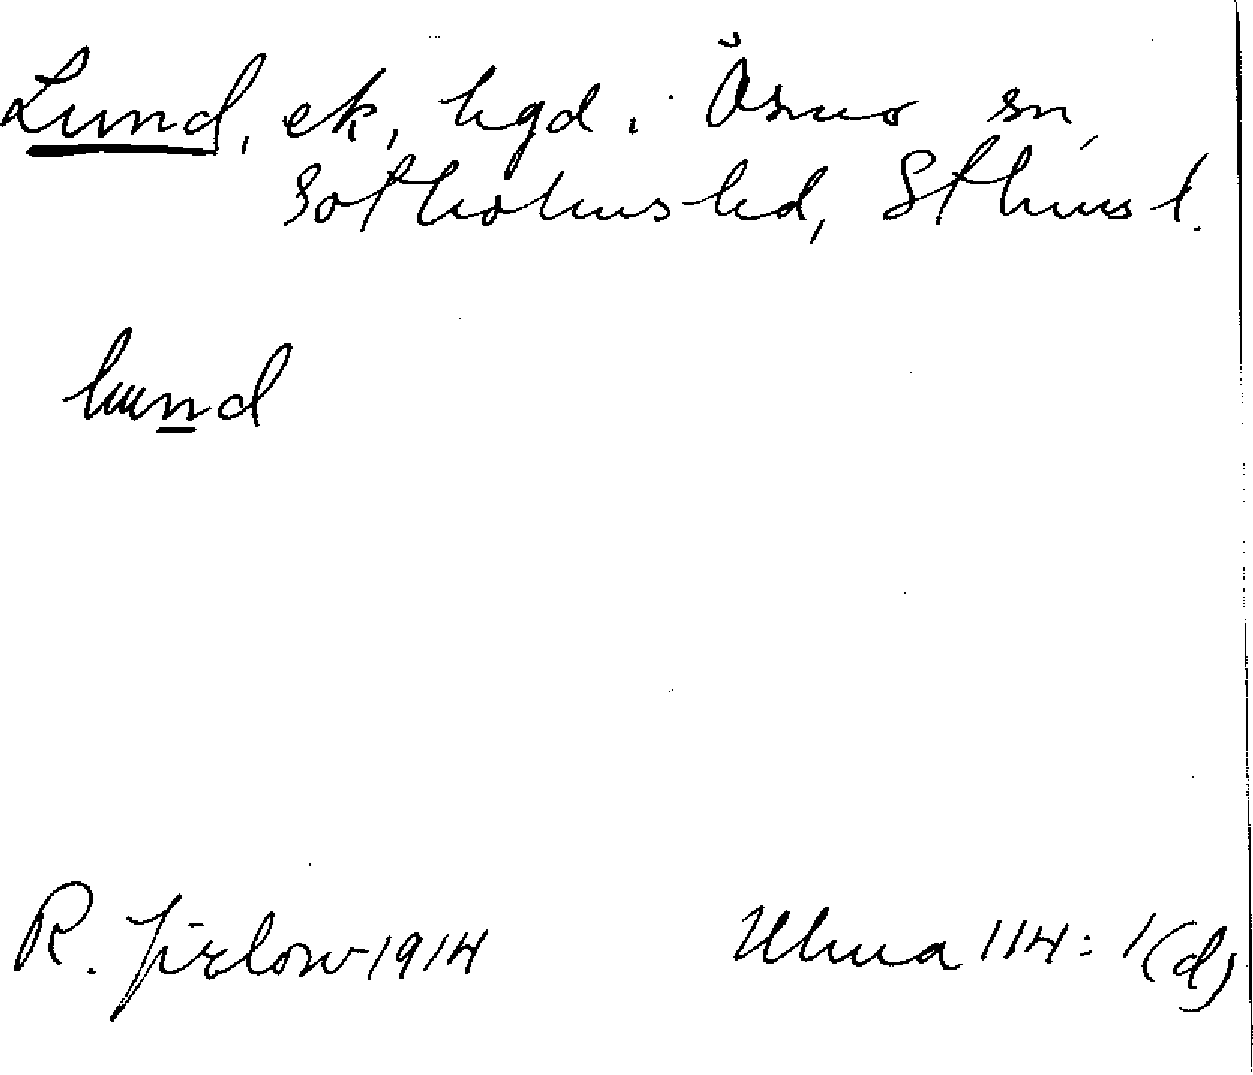 Lund, ek, hgd. Ösmo sn,
Sotholms hd, Sthms l.
lund
R. Jirlow 1914 Ulma 114:1(d)